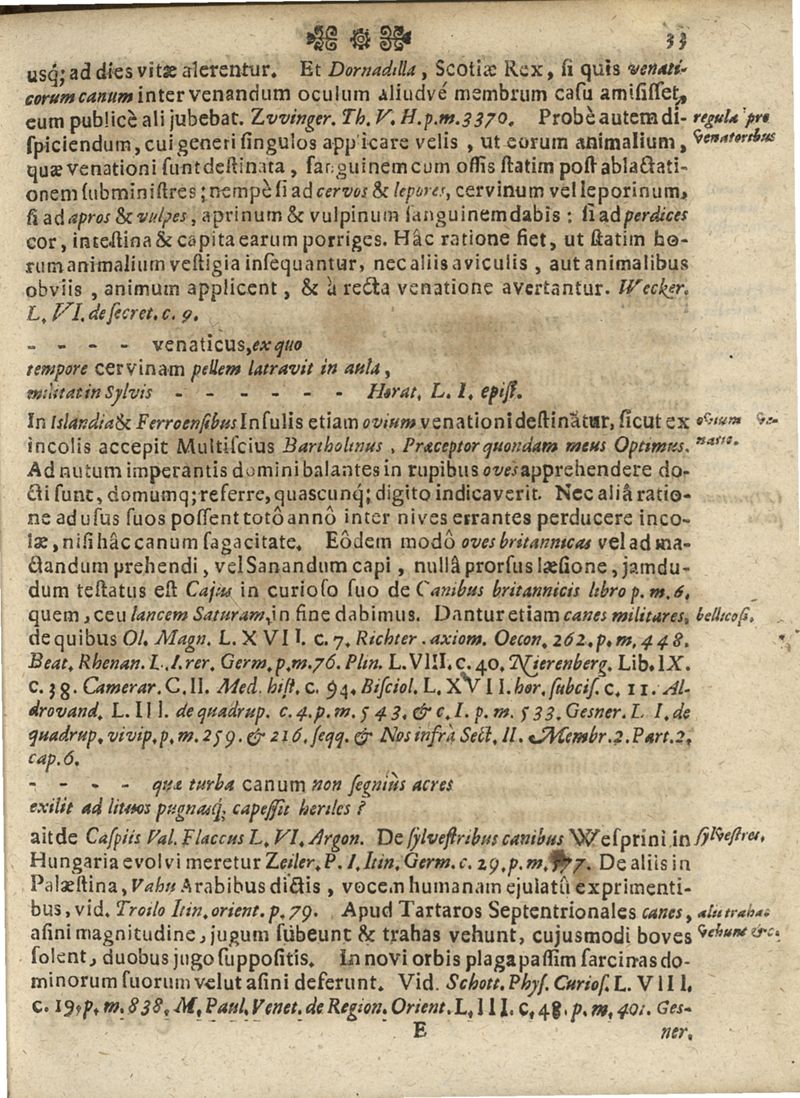 33
usq́; ad dies vitæ alerentur. Et Dornadilla, Scotiæ Rex, ſi quis venati-
corum canum inter venandum oculum aliudvé membrum caſu amiſiſſet,
eum publicè ali jubebat. Zvvinger. Th. V. H. p. m. 3370. Probè autem di- regula pro
ſpiciendum, cui generi ſingulos applicare velis, ut eorum animalium, venatoribus
quæ venationi ſunt deſtinata, ſanguinem cum offis ſtatim poſt ablactati-
onem ſubminiſtres; nempè ſi ad cervos & lepores, cervinum vel leporinum,
ſi ad apros & vulpes, aprinum & vulpinum ſanguinem dabis: ſi ad perdices
cor, inteſtina & capita earum porriges. Hâc ratione fiet, ut ſtatim ho-
rum animalium veſtigia inſequantur, nec aliis aviculis, aut animalibus
obviis, animum applicent, & à recta venatione avertantur. Wecker.
L. VI. de ſecret. c. 9.
- - - - venaticus, ex quo
tempore cervinam pellem latravit in aula,
militat in Sylvis - - - - - - Horat. L. I. epiſt.
In Islandia & Ferroenſibus Inſulis etiam ovium venationi deſtinãtur, ſicut ex ovium ve-
incolis accepit Multiſcius Bartholinus, Præceptor quondam meus Optimus. natio.
Ad nutum imperantis domini balantes in rupibus oves apprehendere do-
cti ſunt, domumq; referre, quascunq́; digito indicaverit. Nec aliâ ratio-
ne ad uſus ſuos poſſent totô annô inter nives errantes perducere inco-
læ, niſi hâc canum ſagacitate. Eôdem modô oves britannicas vel ad ma-
ctandum prehendi, vel Sanandum capi, nullâ prorſus læſione, jamdu-
dum teſtatus eſt Cajus in curioſo ſuo de Canibus britannicis libro p. m. 6.
quem, ceu lancem Saturam, in fine dabimus. Dantur etiam canes militares, bellicoſi.
de quibus Ol. Magn. L. XVII. c. 7. Richter. axiom. Oecon. 262. p. m. 448.
Beat. Rhenan. L. I. rer. Germ. p. m. 76. Plin. L. VIII. c. 40. Nierenberg. Lib. IX.
c. 38. Camerar. C. II. Med. hiſt. c. 94. Biſciol. L. XVII. hor. ſubciſ. c. 11. Al-
drovand. L. III. de quadrup. c. 4. p. m. 543. & c. I. p. m. 533. Gesner. L. I. de
quadrup. vivip. p. m. 259. & 216. ſeqq. & Nos infrà Sect. II. Membr. 2. Part. 2.
cap. 6.
- - - - quæ turba canum non ſegniùs acres
exilit ad lituos pugnasq́; capeſſit heriles?
ait de Caſpiis Val. Flaccus L. VI. Argon. De ſylveſtribus canibus Weſprini in ſylveſtres,
Hungaria evolvi meretur Zeiler. P. I. Itin. Germ. c. 29. p. m. 7. De aliis in
Palæſtina, Vahu Arabibus dictis, vocem humanam ejulatû exprimenti-
bus, vid. Troilo Itin. orient. p. 79. Apud Tartaros Septentrionales canes, alii trahas
aſini magnitudine, jugum ſubeunt & trahas vehunt, cujusmodi boves vehunt &c.
ſolent, duobus jugo ſuppoſitis. In novi orbis plaga paſſim ſarcinas do-
minorum ſuorum velut aſini deferunt. Vid. Schott. Phyſ. Curioſ. L. VIII.
c. 19. p. m. 838. M. Paul. Venet. de Region. Orient. L. III. c. 48. p. m. 401. Ges-
E ner.